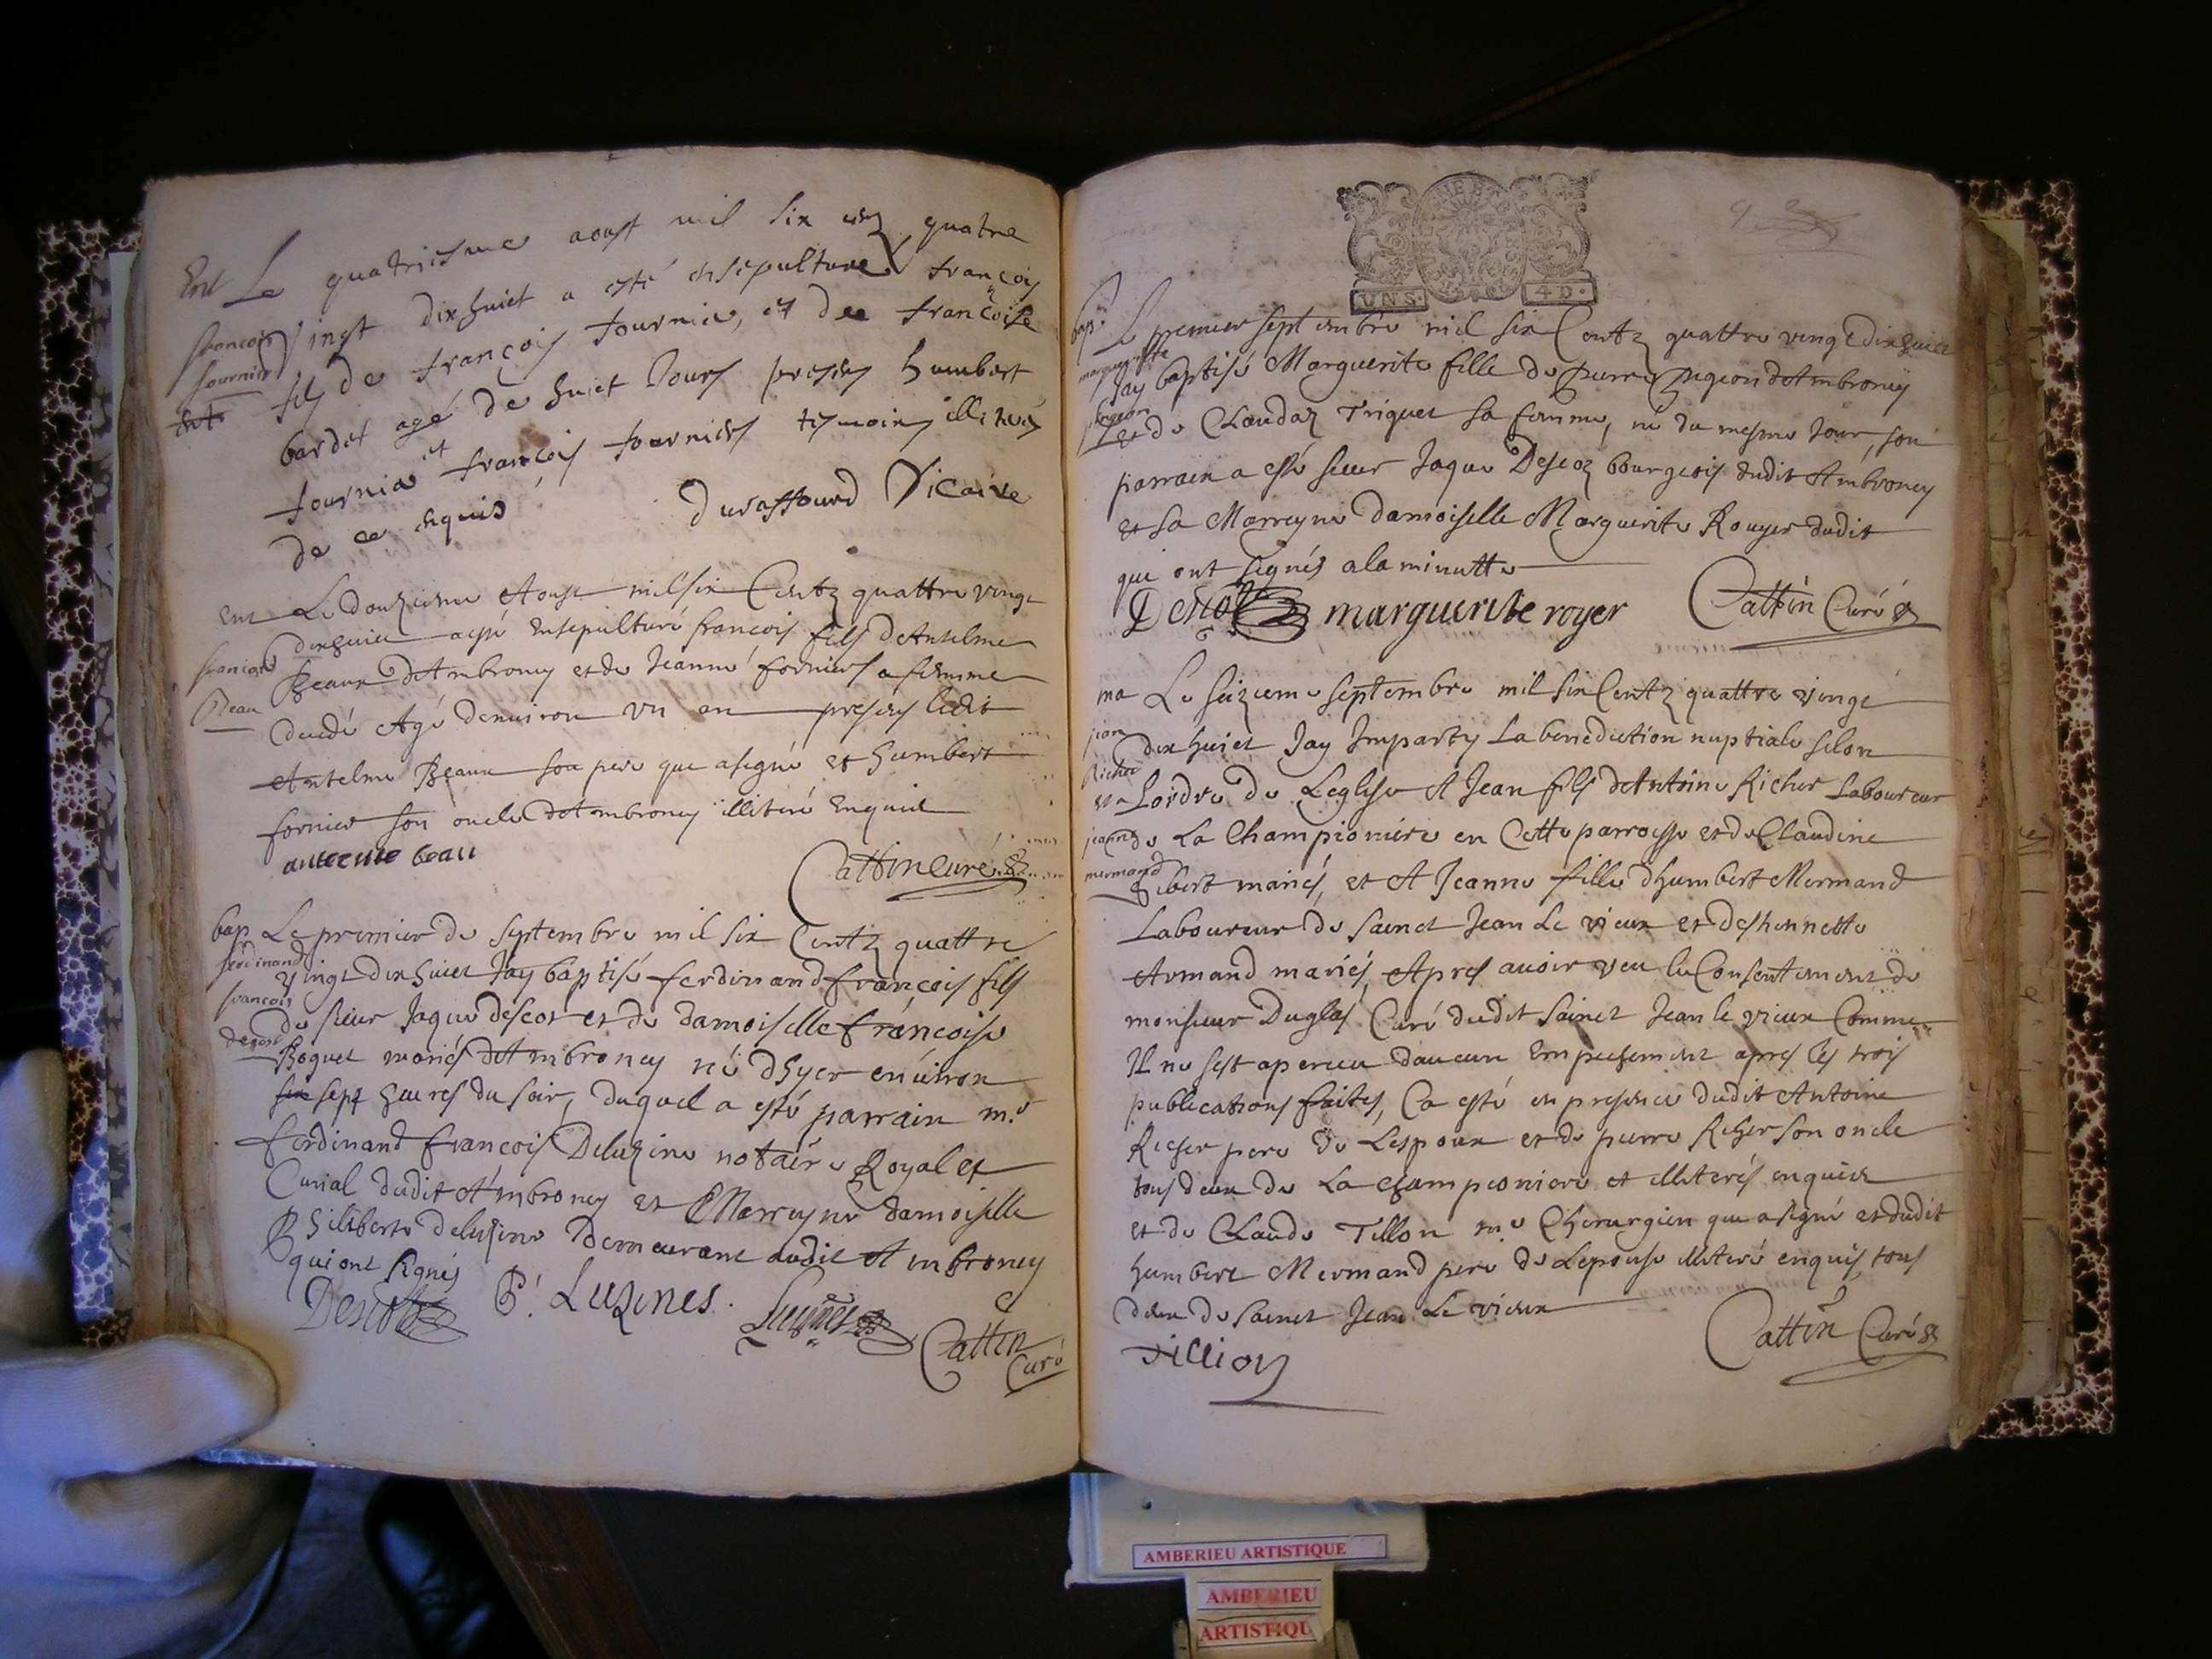 Ent Le quatriesme aoust mil six cen quatre
francois fournier vingt dixhuict a esté ensepulturé françois
fils de françois fournier, et de francoise
bardet agé de huict Jours presens humbert
fournier et francois fournier tesmoins illiterés
de ce enquis Durassourd Vicaire
Ent Le douzieme Aoust mil six Centz quattre vingt
dixhuict a esté Ensepulturé françois fils dAntelme
francois Beau Beaux dAmbroney et de Jeanne fornier sa femme
Agé denuiron un an presens ledit
Antelme Beaux son pere que a signé et humbert
fornier son oncle dAmbroney illiteré Enquis
anteme beau
Cattin Curé
bap Le premier de septembre mil six Centz quattre
ferdinand francois vingt dixhuict Jay baptisé ferdinand françois fils
de sieur Jaque descot et de damoiselle françoise
Roquet mariés dAmbroney né dhyer enuiron
six sept heures du soir, duquel a esté parrain m.e
ferdinand francois Deluzine notaire Royal et
Curial dudit Ambroney et Marreyne damoiselle
Philiberte deluzine demeurant audit Ambroney
qui ont signés
Descot P. Luzines. Luzines Cattin
Curé
UN S. 4 D.
bap. Le premier septembre mil six Centz quattre vingt dixhuict
margueritte Jay baptisé Marguerite fille de pierre pigeon dAmbroney
pigeon et de Claudaz Triquet sa femme, né du mesme Jour, son
parrain a esté sieur Jaque Descoz bourgeois dudit Ambroney
et sa Marreyne damoiselle Marguerite Rouyer dudit
qui ont signés a la minutte
Descot marguerite royer Cattin Curé
ma Le seizieme septembre mil six Centz quattre vingt
jean dix huict Jay Imparty La benediction nuptiale selon
Richer et Lordre de Leglise A Jean fils dAntoine Richer Laboureur
jeanne de La Championiere en Cette parroisse et de Claudine
mermand Gibert mariés, et A Jeanne fille dhumbert Mermand
Laboureur de Sainct Jean Le vieux et desthennette
Armand mariés, Apres auoir veu le Consentement de
monsieur Duglas Curé dudit Sainct Jean le vieux Comme
Il ne sest aperceu daucun Empeschement apres les trois
publications faites, Ca esté en presence dudit Antoine
Richer pere de Lespoux et de pierre Richer son oncle
tous deux de La Championiere et illiterés enquis
et de Claude Tillon m.e Chirurgien que a signé et dudit
humbert Mermand pere de Lepouse illiteré enquis, tous
deux de Sainct Jean Le vieux
Cattin Curé
tillion
AMBERIEU ARTISTIQUE
AMBERIEU
ARTISTIQU